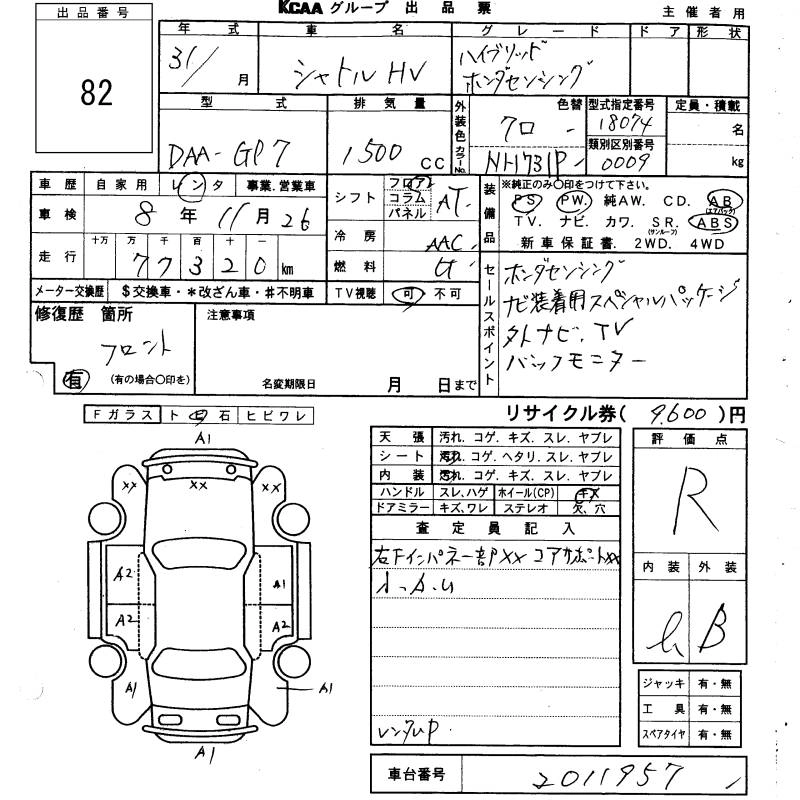 KCAA グループ 出品票
主催者用
出品番号
82
年式 車名 グレード ドア 形状
31/ 月 シャトル HV ハイブリッド
ホンダセンシング
型式 排気量 外装色 色替 型式指定番号 定員・積載
DAA-GP7 1500 CC クロ - 18074 名
カラーNo. NH731P - 類別区別番号 0009 kg
車歴 自家用 レンタ 事業.営業車
車検 8年 11月 26
走行 十万 万 千 百 十 一
77320 km
メーター交換歴 $交換車・*改ざん車・#不明車
シフト フロア コラム パネル AT
冷房 AAC
燃料 G
TV視聴 可 不可
装備品 ※純正のみ○印をつけて下さい。
PS PW. 純AW. CD. AB (エアバック)
TV. ナビ. カワ. SR. (サンルーフ) ABS
新車保証書. 2WD. 4WD
セールスポイント
ホンダセンシング
ナビ装着用スペシャルパッケージ
外ナビ.TV
バックモニター
修復歴 箇所
フロント
有 (有の場合○印を)
注意事項
名変期限日 月 日まで
Fガラス ト 日 石 ヒビワレ
リサイクル券( 9.600 )円
A1
XX XX XX
A2 A1
A2 A2
A1 A1
A1
天張 汚れ. コゲ. キズ. スレ. ヤブレ
シート 汚れ. コゲ. ヘタリ. スレ. ヤブレ
内装 汚れ. コゲ. キズ. スレ. ヤブレ
ハンドル スレ、ハゲ ホイール(CP) キズ
ドアミラー キズ、ワレ ステレオ 欠、穴
査定員記入
右Fインパネ一部PXX コアサポートXX
レンタUP
評価点
R
内装 外装
B
ジャッキ 有・無
工具 有・無
スペアタイヤ 有・無
車台番号 2011957